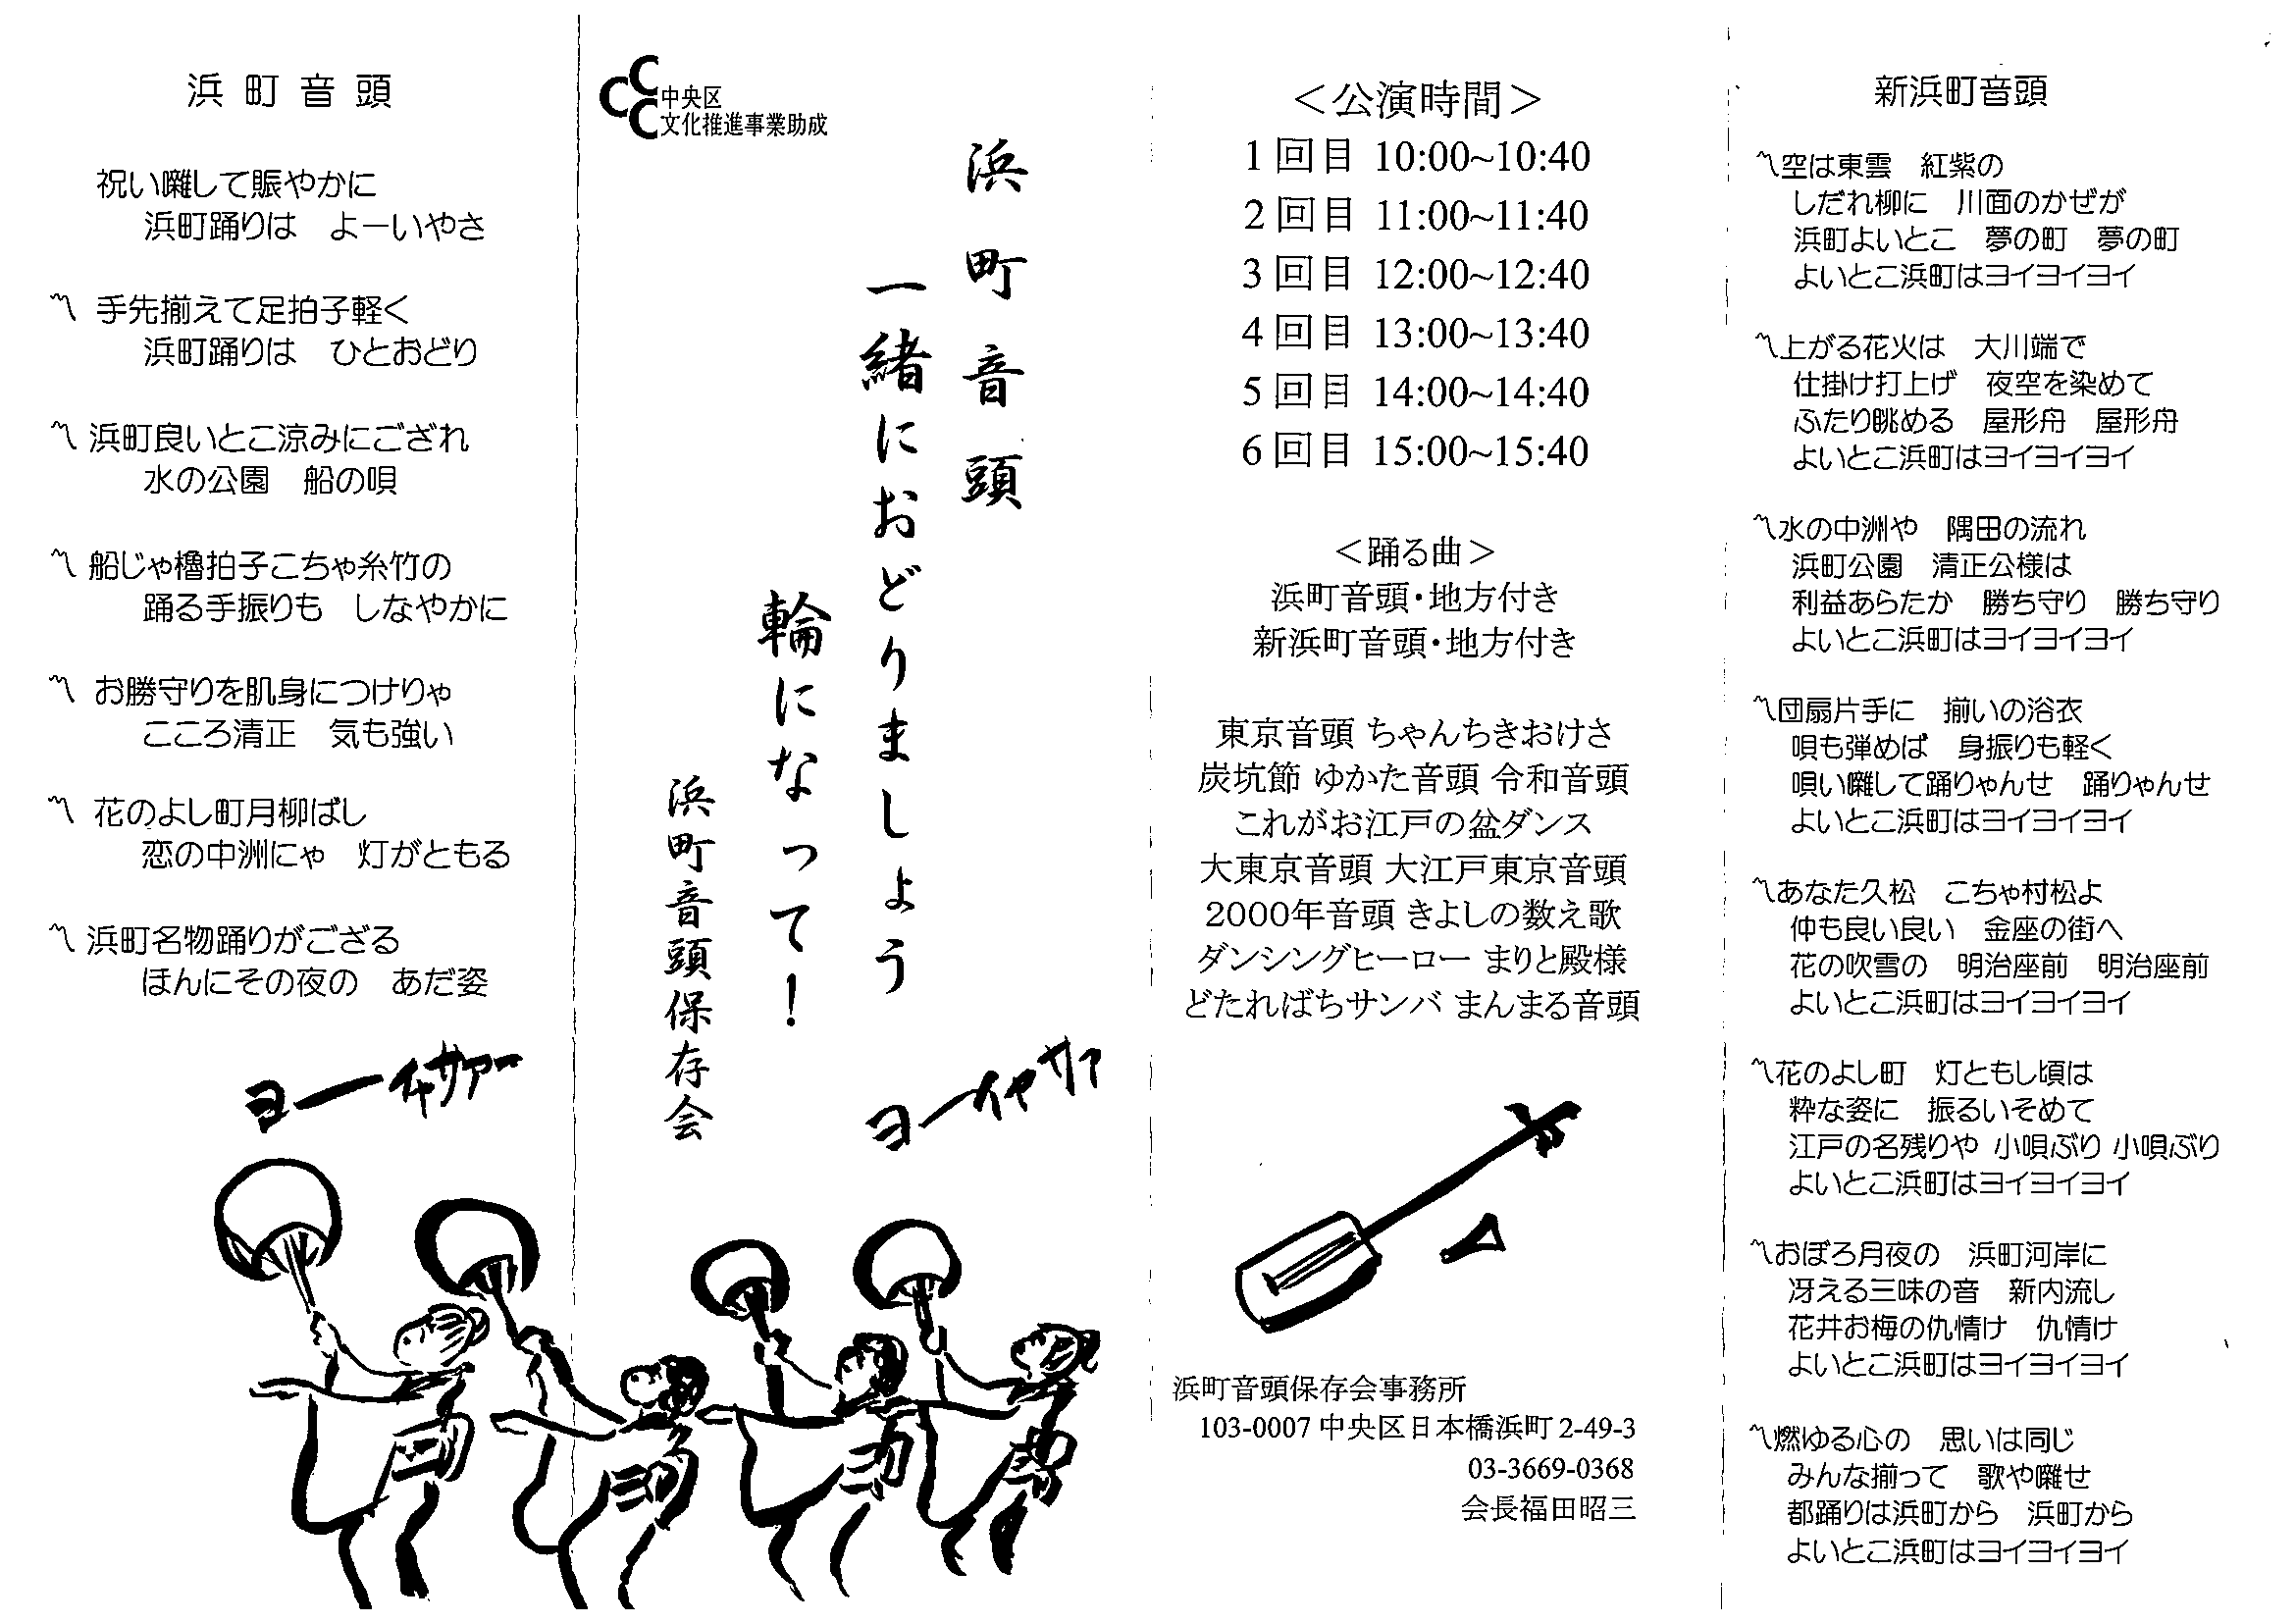 浜町音頭
祝い囃して賑やかに
浜町踊りは　よーいやさ
〽 手先揃えて足拍子軽く
浜町踊りは　ひとおどり
〽 浜町良いとこ涼みにござれ
水の公園　船の唄
〽 船じゃ櫓拍子こちゃ糸竹の
踊る手振りも　しなやかに
〽 お勝守りを肌身につけりゃ
こころ清正　気も強い
〽 花のよし町月柳ばし
恋の中洲にゃ　灯がともる
〽 浜町名物踊りがござる
ほんにその夜の　あだ姿
ヨーイヤサァー
CCC
中央区
文化推進事業助成
浜町音頭
一緒におどりましょう
輪になって!
浜町音頭保存会
ヨーイヤサァ
＜公演時間＞
1回目 10:00~10:40
2回目 11:00~11:40
3回目 12:00~12:40
4回目 13:00~13:40
5回目 14:00~14:40
6回目 15:00~15:40
＜踊る曲＞
浜町音頭・地方付き
新浜町音頭・地方付き
東京音頭 ちゃんちきおけさ
炭坑節 ゆかた音頭 令和音頭
これがお江戸の盆ダンス
大東京音頭 大江戸東京音頭
2000年音頭 きよしの数え歌
ダンシングヒーロー まりと殿様
どたればちサンバ まんまる音頭
浜町音頭保存会事務所
103-0007 中央区日本橋浜町 2-49-3
03-3669-0368
会長福田昭三
新浜町音頭
〽空は東雲　紅紫の
しだれ柳に　川面のかぜが
浜町よいとこ　夢の町　夢の町
よいとこ浜町はヨイヨイヨイ
〽上がる花火は　大川端で
仕掛け打上げ　夜空を染めて
ふたり眺める　屋形舟　屋形舟
よいとこ浜町はヨイヨイヨイ
〽水の中洲や　隅田の流れ
浜町公園　清正公様は
利益あらたか　勝ち守り　勝ち守り
よいとこ浜町はヨイヨイヨイ
〽団扇片手に　揃いの浴衣
唄も弾めば　身振りも軽く
唄い囃して踊りゃんせ　踊りゃんせ
よいとこ浜町はヨイヨイヨイ
〽あなた久松　こちゃ村松よ
仲も良い良い　金座の街へ
花の吹雪の　明治座前　明治座前
よいとこ浜町はヨイヨイヨイ
〽花のよし町　灯ともし頃は
粋な姿に　振るいそめて
江戸の名残りや 小唄ぶり 小唄ぶり
よいとこ浜町はヨイヨイヨイ
〽おぼろ月夜の　浜町河岸に
冴える三味の音　新内流し
花井お梅の仇情け　仇情け
よいとこ浜町はヨイヨイヨイ
〽燃ゆる心の　思いは同じ
みんな揃って　歌や囃せ
都踊りは浜町から　浜町から
よいとこ浜町はヨイヨイヨイ